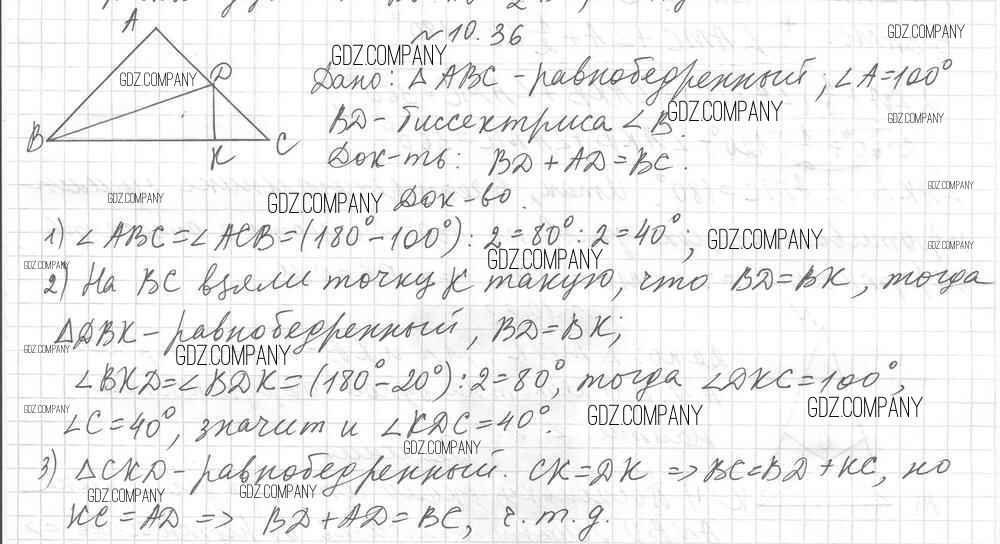 A
№10.36
GDZ.COMPANY
GDZ.COMPANY
GDZ.COMPANY
D
Дано: △ABC – равнобедренный, ∠A=100°
GDZ.COMPANY
BD – биссектриса ∠B.
GDZ.COMPANY
B
K
C
Док-ть: BD + AD = BC.
GDZ.COMPANY
GDZ.COMPANY
GDZ.COMPANY
Док-во.
1) ∠ABC = ∠ACB = (180° – 100°) : 2 = 80° : 2 = 40°;
GDZ.COMPANY
GDZ.COMPANY
GDZ.COMPANY
GDZ.COMPANY
2) На BC взяли точку K такую, что BD = BK, тогда
△DBK – равнобедренный, BD = BK;
GDZ.COMPANY
GDZ.COMPANY
∠BKD = ∠BDK = (180° – 20°) : 2 = 80°, тогда ∠DKC = 100°,
GDZ.COMPANY
GDZ.COMPANY
GDZ.COMPANY
∠C = 40°, значит и ∠KDC = 40°.
GDZ.COMPANY
3) △CKD – равнобедренный. CK = DK => BC = BD + KC, но
GDZ.COMPANY
GDZ.COMPANY
KC = AD => BD + AD = BC, ч.т.д.